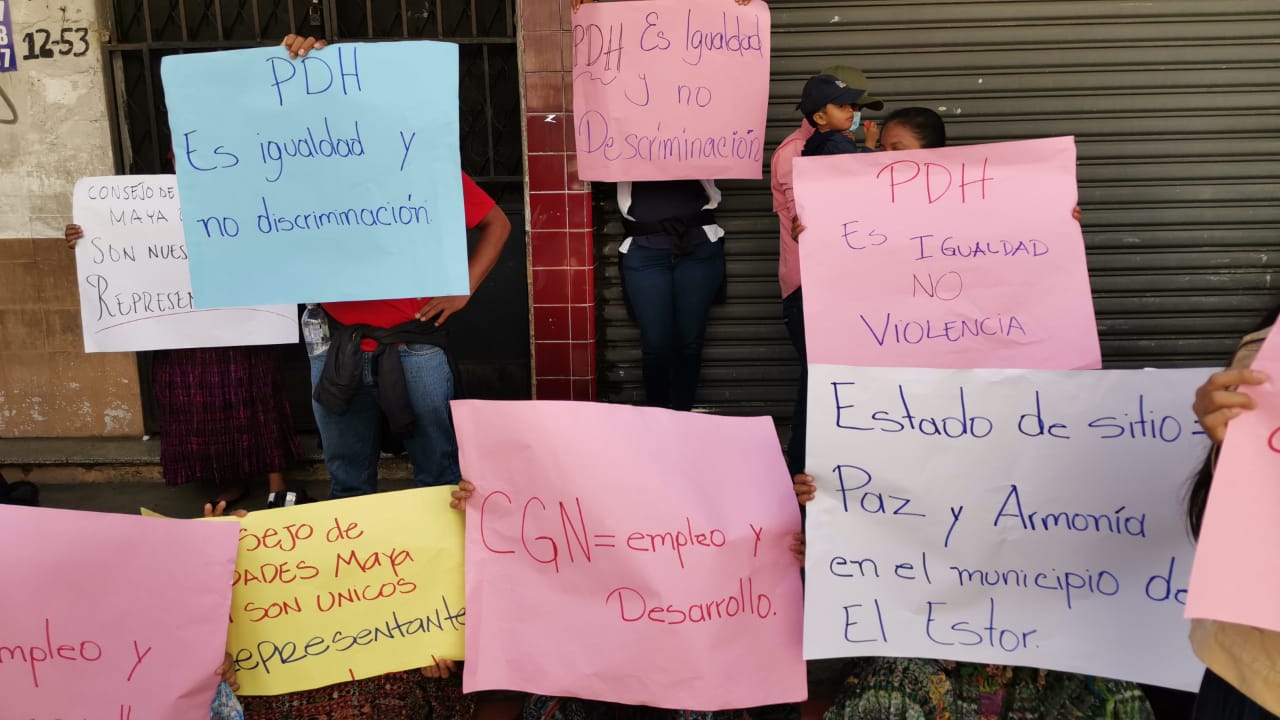 12-53
PDH
Es igualdad y
no discriminación.
PDH Es Igualdad
y no
Descriminación
CONSEJO DE
MAYA
SON
REPRESEN
PDH
Es IGUALDAD
NO
VIOLENCIA
Estado de sitio =
Paz y Armonía
en el municipio de
El Estor.
CGN = empleo y
Desarrollo.
de
Maya
SON UNICOS
y